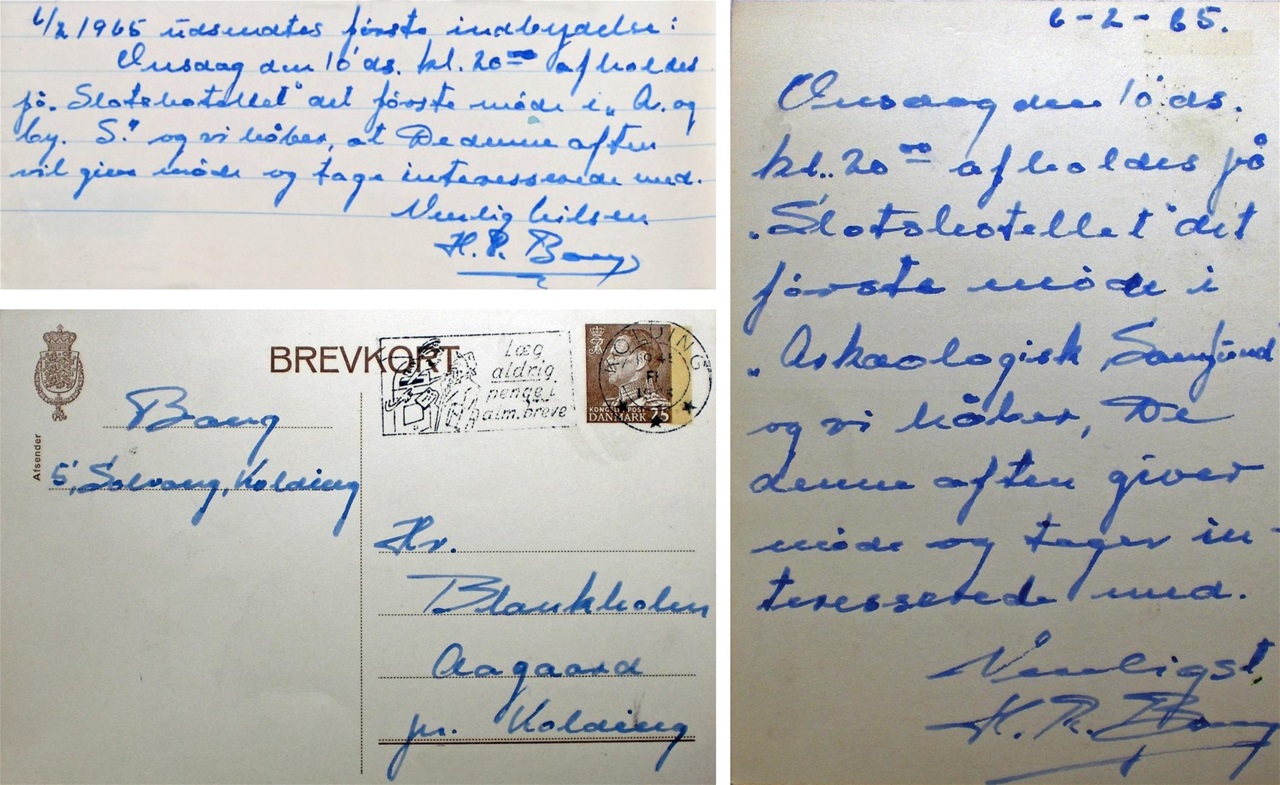 6/2 1965 udsendtes første indbydelse:
Onsdag den 10' ds. kl. 20 00 afholdes
på "Slotshotellet" det første møde i "A. og
by. S." og vi håber, at De denne aften
vil give møde og tage interesserede med.
Venlig hilsen
H. R. Bang
BREVKORT
Læg
aldrig
penge i
alm. breve
KOLDING
KONGELIG POST
DANMARK 75
Afsender
Bang
5, Solvang, Kolding
Hr.
Blankholm
Aagaard
pr. Kolding
6-2-65.
Onsdag den 10' ds.
kl. 20 00 afholdes på
"Slotshotellet" det
første møde i
"Arkæologisk Samfund
og vi håber, De
denne aften giver
møde og tager in-
teresserede med.
Venligst
H. R. Bang